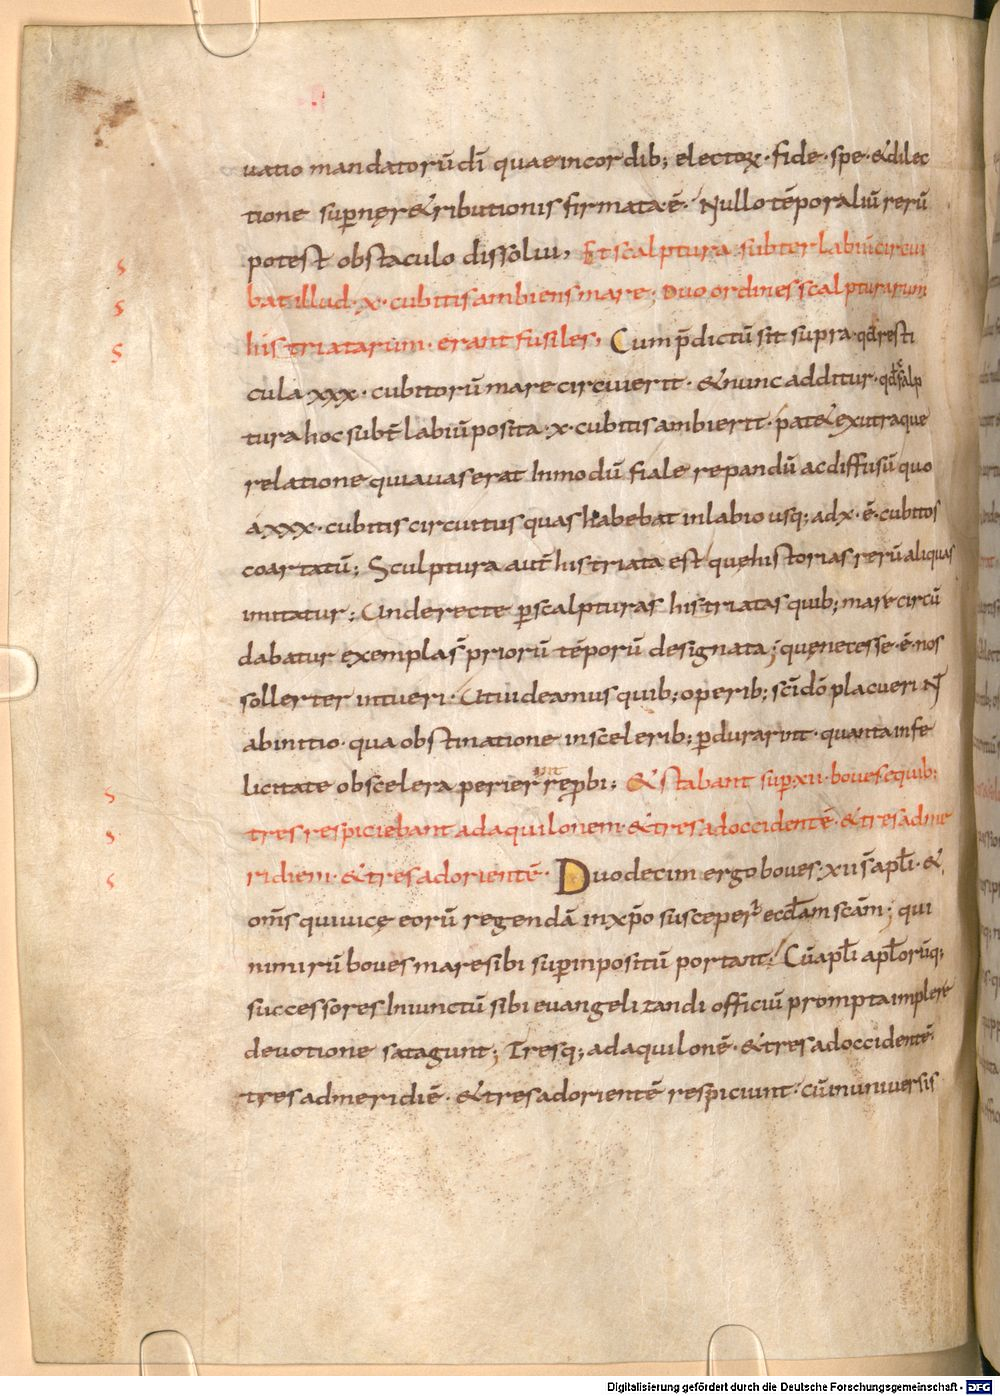 uatio mandatorū dī quae incordib; electoꝝ · fide · spe · & dilec
tione supnę r&ributionis firmata ē · Nullo tēporaliū rerū
potest obstaculo dissolui, Et scalptura subter labiū circui
bat illud · x · cubitis ambiens mare ; Duo ordines scalpturarum
histriatarum · erant fusiles, Cum p̄dictū sit supra · qd resti
cula xxx · cubitorū mare circuierit · & nunc additur · qd scalp
tura hoc subt̄ labiū posita · x · cubitis ambierit · pat& ex utraque
relatione quia uas erat Inmodū fiale repandū ac diffusū quo
a xxx · cubitis circuitus quas habebat in labio usq; ad x · ē · cubitos
coartatū ; Sculptura aut̄ histriata est quę historias rerū aliquas
imitatur ; Unde recte ꝑ scalpturas histriatas quib; mare circū
dabatur exempla s̄ priorū tēporū designata ; quę necesse · ē · nos
sollerter intueri · Ut uideamus quib; operib; sc̄i dō placuerunt
ab initio · qua obstinatione in scelerib; ꝑdurarunt · quanta infe
licitate ob scelera perierunt rep̱bi ; & stabant sup xii · boues e quib;
tres respiciebant ad aquilonem · & tres ad occidentē · & tres ad me
ridiem · & tres ad orientē · Duodecim ergo boues · xii s̄ apłi · &
om̄s qui uicę eorū regendā in xp̄o susceper̄ eccłam sc̄am ; qui
nimirū boues mare sibi sup inpositū portant ; Cū apłi apłorūq;
successores Iniunctū sibi euangelizandi officiū prompta implere
deuotione satagunt ; Tresq; ad aquilonē · & tres ad occidentē
tres ad meridiē · & tres ad orientē respiciunt · cū in uniuersis
Digitalisierung gefördert durch die Deutsche Forschungsgemeinschaft - DFG